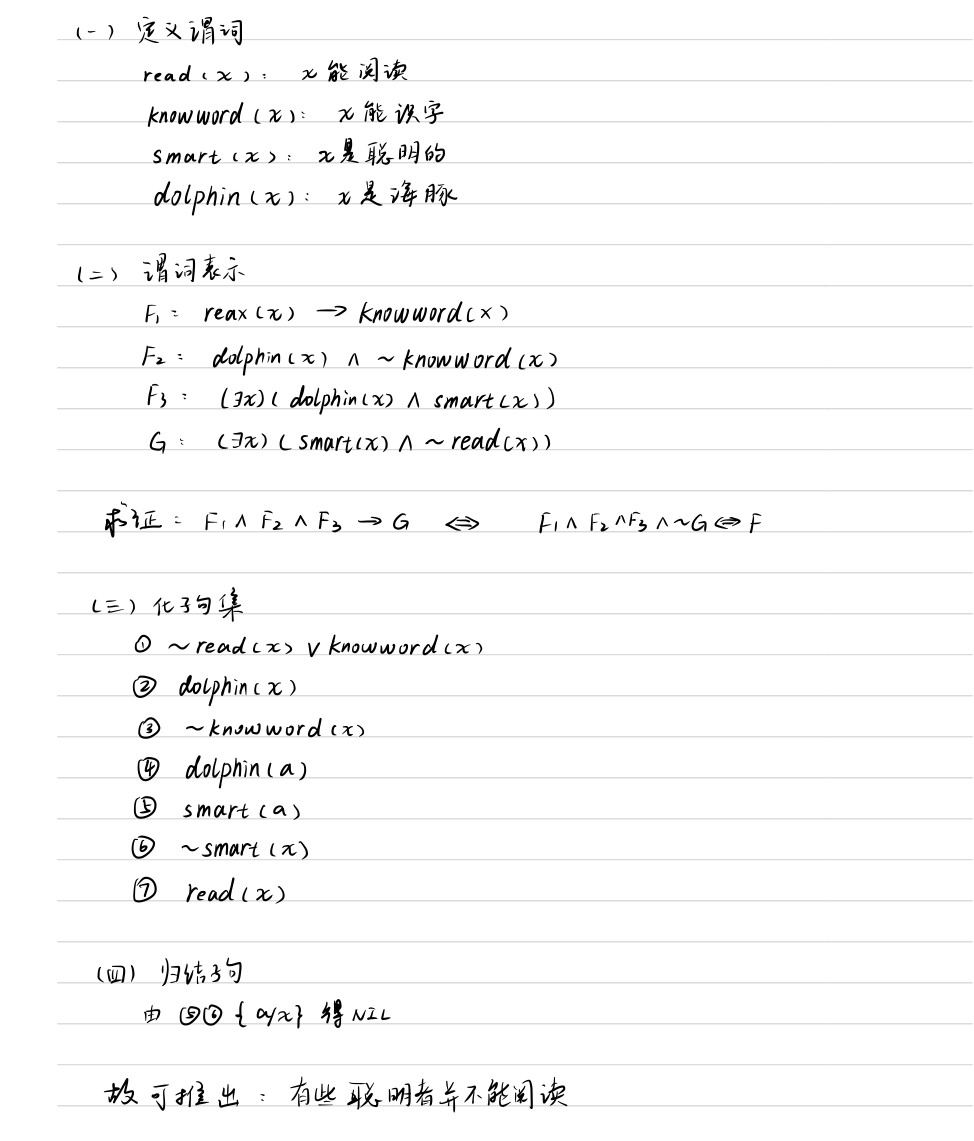 (一) 定义谓词
read(x): x能阅读
knowword(x): x能识字
smart(x): x是聪明的
dolphin(x): x是海豚
(二) 谓词表示
F₁: reax(x) → knowword(x)
F₂: dolphin(x) ∧ ~knowword(x)
F₃: (∃x)(dolphin(x) ∧ smart(x))
G: (∃x)(smart(x) ∧ ~read(x))
求证: F₁∧F₂∧F₃→G ⇔ F₁∧F₂∧F₃∧~G⇔F
(三) 化子句集
① ~read(x) ∨ knowword(x)
② dolphin(x)
③ ~knowword(x)
④ dolphin(a)
⑤ smart(a)
⑥ ~smart(x)
⑦ read(x)
(四) 归结子句
由 ⑤⑥ {a/x} 得 NIL
故可推出: 有些聪明者并不能阅读